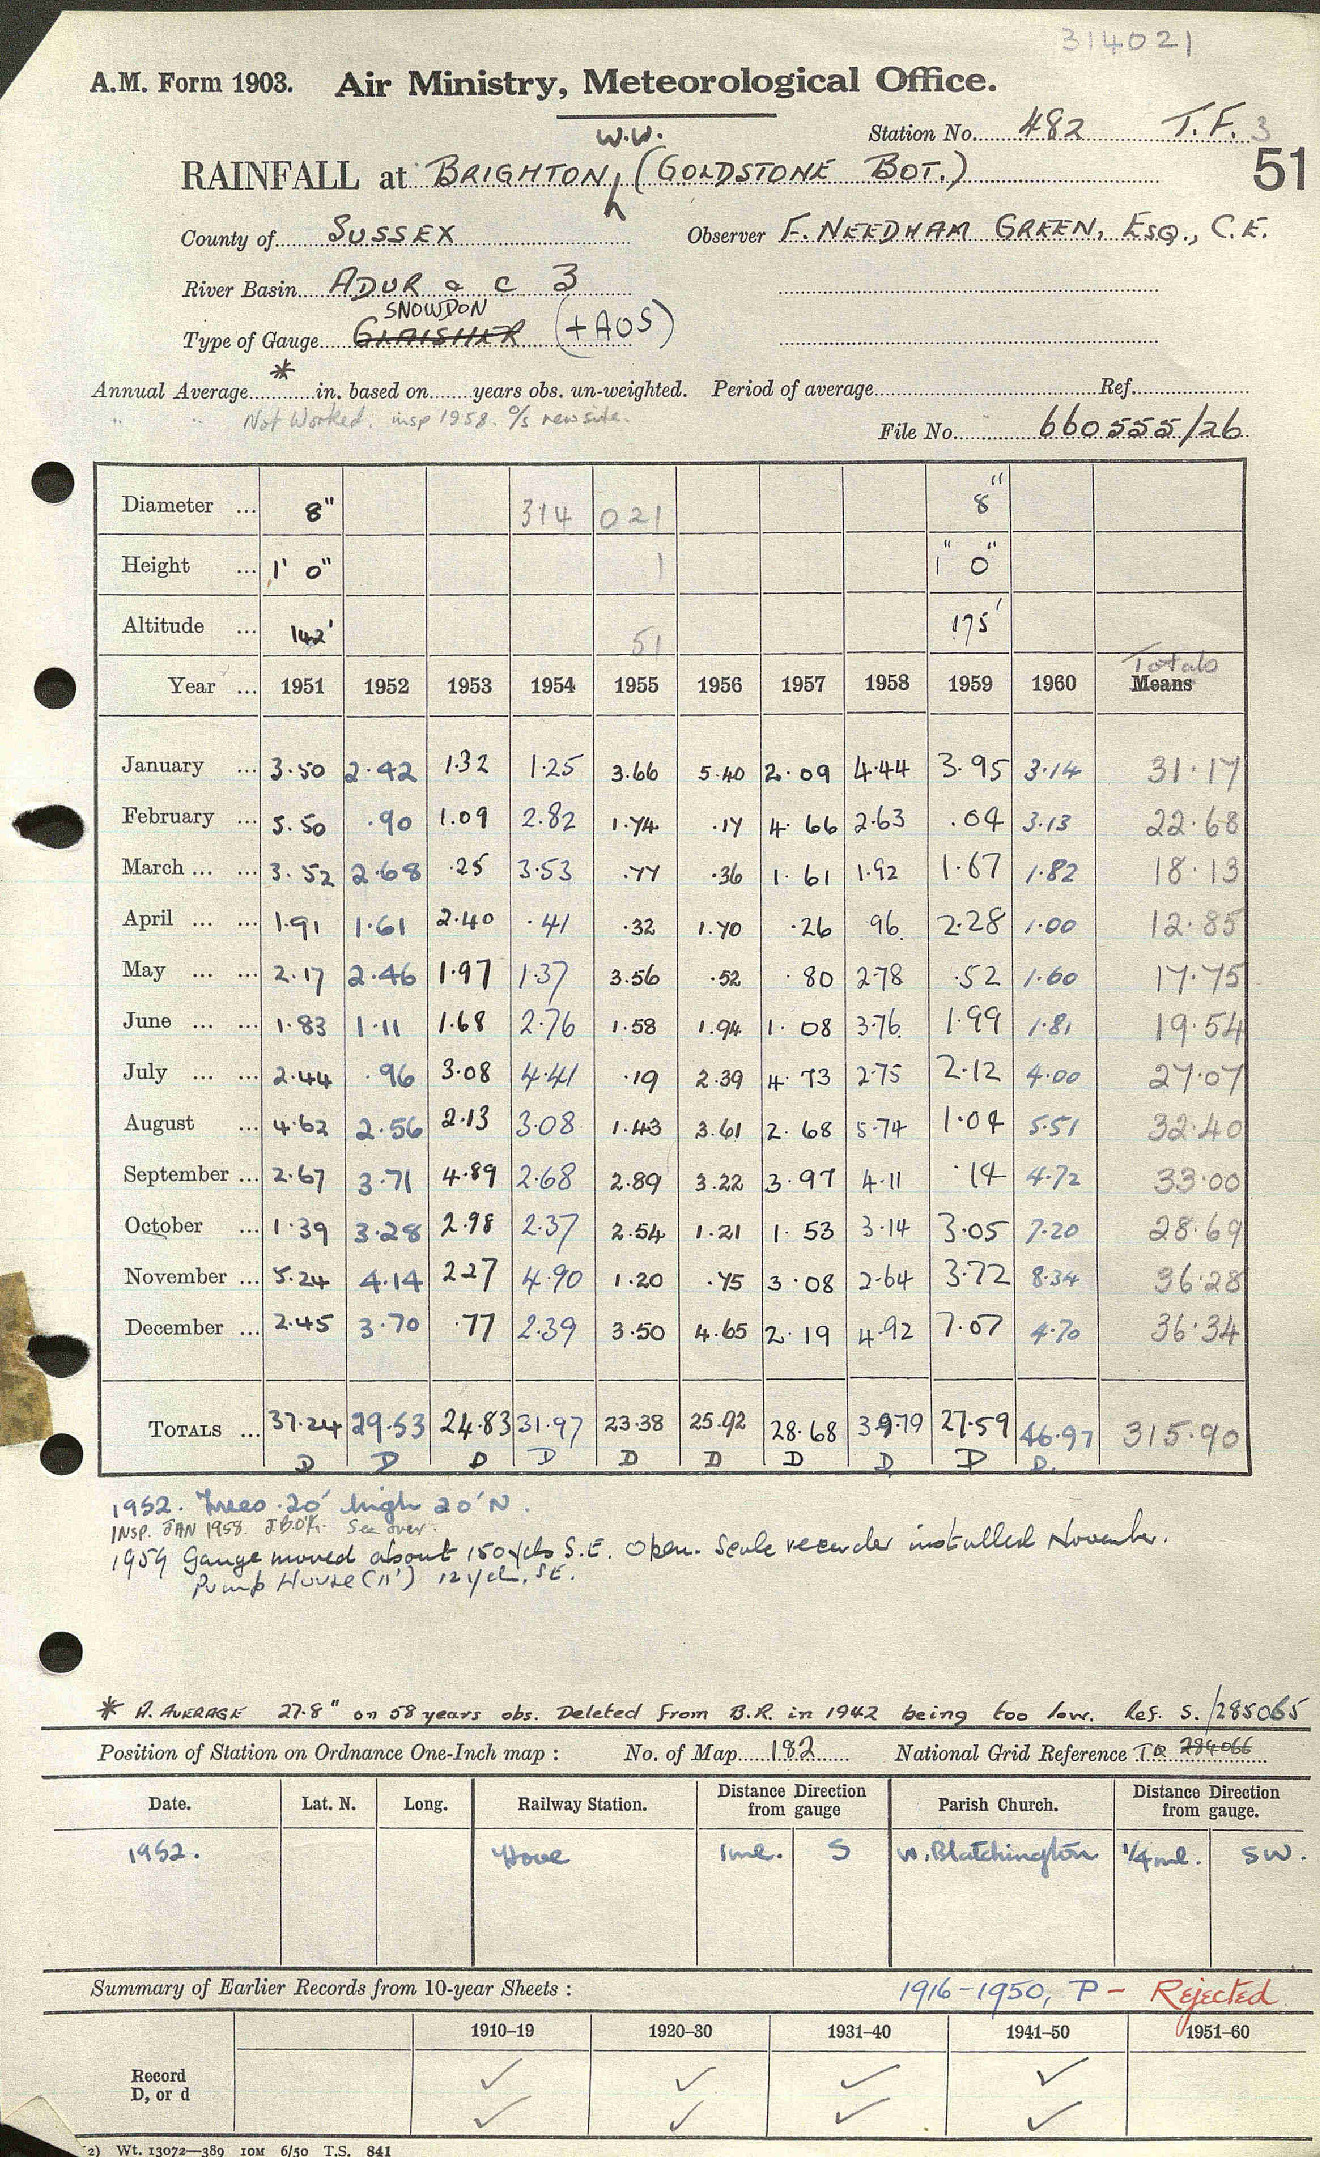 314021
A.M. Form 1903. Air Ministry, Meteorological Office.
Station No. 482 T.F. 3
W.W.
RAINFALL at BRIGHTON (GOLDSTONE BOT.) 51
County of SUSSEX Observer F. NEEDHAM GREEN, ESQ., C.E.
River Basin ADUR & C 3
SNOWDON
Type of Gauge GLAISHER (+AOS)
Annual Average * in. based on years obs. un-weighted. Period of average Ref.
" " Not Worked. insp 1958. O/S new site.
File No. 660555/26
Diameter ... 8" 314 021 8"
Height ... 1' 0" 1 1" 0"
Altitude ... 142' 51 175'
Totals
Year ... 1951 1952 1953 1954 1955 1956 1957 1958 1959 1960 Means
January ... 3.50 2.42 1.32 1.25 3.66 5.40 2.09 4.44 3.95 3.14 31.17
February ... 5.50 .90 1.09 2.82 1.74 .17 4.66 2.63 .04 3.13 22.68
March ... ... 3.52 2.68 .25 3.53 .77 .36 1.61 1.92 1.67 1.82 18.13
April ... ... 1.91 1.61 2.40 .41 .32 1.70 .26 .96 2.28 1.00 12.85
May ... ... 2.17 2.46 1.97 1.37 3.56 .52 .80 2.78 .52 1.60 17.75
June ... ... 1.83 1.11 1.68 2.76 1.58 1.94 1.08 3.76 1.99 1.81 19.54
July ... ... 2.44 .96 3.08 4.41 .19 2.39 4.73 2.75 2.12 4.00 27.07
August ... 4.62 2.56 2.13 3.08 1.43 3.61 2.68 5.74 1.04 5.51 32.40
September ... 2.67 3.71 4.89 2.68 2.89 3.22 3.97 4.11 .14 4.72 33.00
October ... 1.39 3.28 2.98 2.37 2.54 1.21 1.53 3.14 3.05 7.20 28.69
November ... 5.24 4.14 2.27 4.90 1.20 .75 3.08 2.64 3.72 8.34 36.28
December ... 2.45 3.70 .77 2.39 3.50 4.65 2.19 4.92 7.07 4.70 36.34
TOTALS ... 37.24 29.53 24.83 31.97 23.38 25.92 28.68 39.79 27.59 46.97 315.90
D D D D D D D D D D.
1952. Trees 20' high 20' N.
INSP. JAN 1958 See over.
1959 Gauge moved about 150 yds S.E. Open Scale recorder installed November.
Pump House (11') 12 yds. SE.
* A. AVERAGE 27.8" on 58 years obs. Deleted from B.R. in 1942 being too low. Ref. S. /285065
Position of Station on Ordnance One-Inch map : No. of Map 182 National Grid Reference TQ 284066
Date. Lat. N. Long. Railway Station. Distance from gauge Direction Parish Church. Distance from gauge. Direction
1952. Hove 1 ml. S W. Blatchington 1/4 ml. SW.
Summary of Earlier Records from 10-year Sheets : 1916-1950, P - Rejected
1910–19 1920–30 1931–40 1941–50 1951–60
Record ✓ ✓ ✓ ✓
D, or d ✓ ✓ ✓ ✓
2) Wt. 13072—389 10M 6/50 T.S. 841